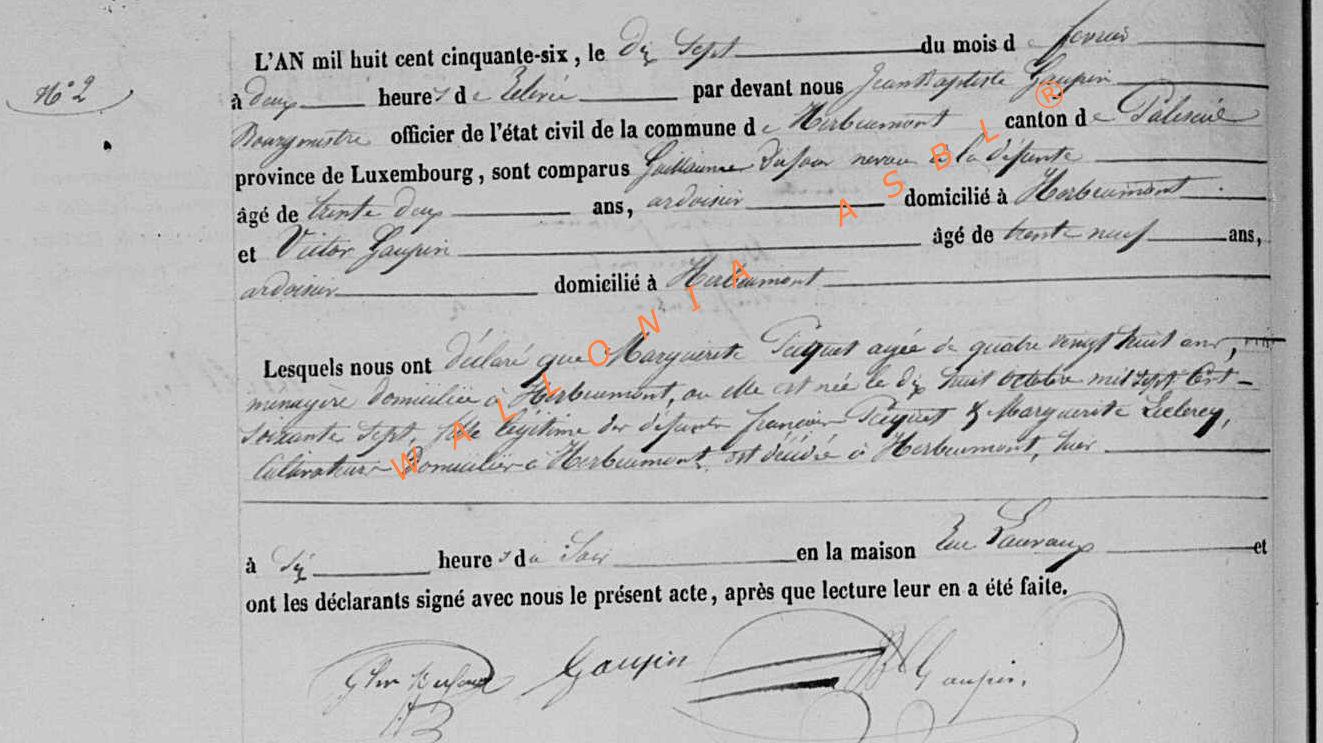 N° 2
L'AN mil huit cent cinquante-six, le dix sept du mois de fevrier
à deux heures de relevée par devant nous Jean Baptiste Gaupin
Bourgmestre officier de l'état civil de la commune de Herbeumont canton de Paliseul
province de Luxembourg, sont comparus Guillaume Dufour neveu à la défunte
âgé de trente deux ans, ardoisier domicilié à Herbeumont
et Victor Gaupin âgé de trente neuf ans,
ardoisier domicilié à Herbeumont
Lesquels nous ont déclaré que Marguerite Picquet agée de quatre vingt huit ans,
ménagère domiciliée à Herbeumont, ou elle est née le dix huit octobre mil sept Cent
soixante sept, fille légitime des défunts françois Picquet & Marguerite Leclercq,
Cultivateurs domiciliés à Herbeumont, est décédée à Herbeumont, hier
à six heures du Soir en la maison Rue et
ont les déclarants signé avec nous le présent acte, après que lecture leur en a été faite.
Glme Dufour Gaupin JB Gaupin.
WALLONIA ASBL ®